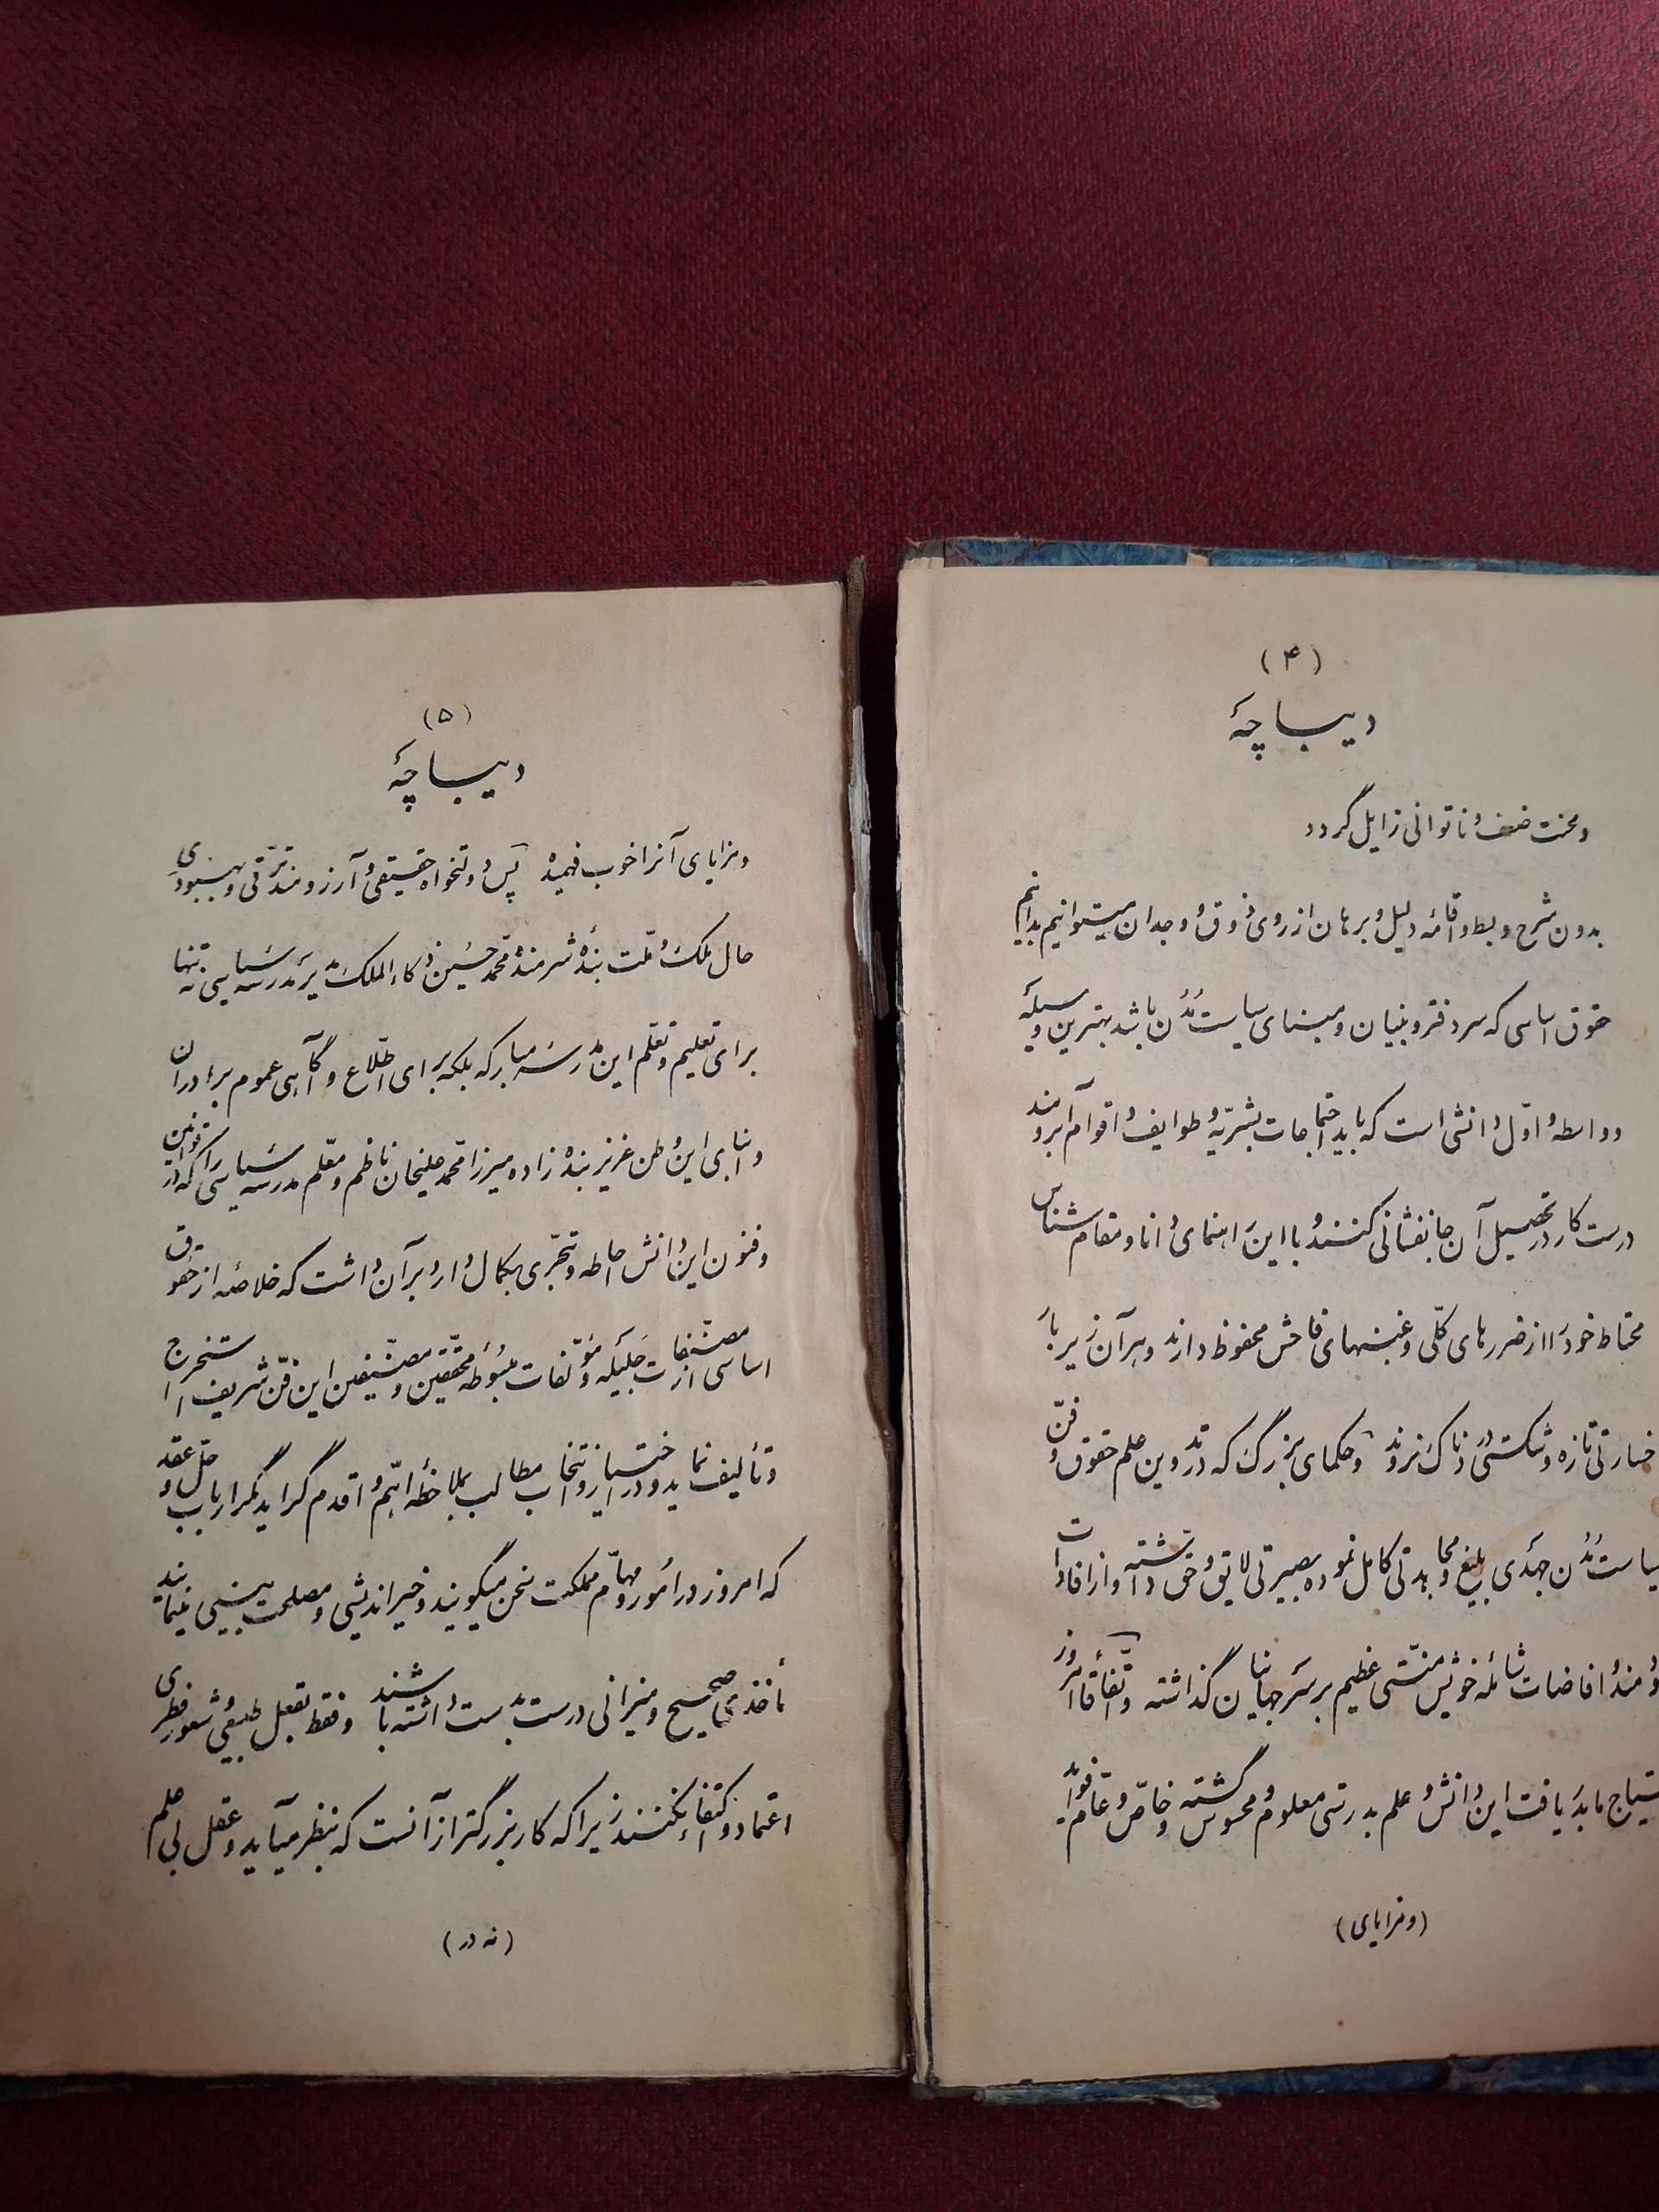 (۴)
دیباچهٔ
و محنت ضعف و ناتوانی زایل گردد
بدون شرح و بسط و اقامهٔ دلیل و برهان از روی ذوق و وجدان میتوانیم بدانیم
حقوق اساسی که سر دفتر و بنیان و مبنای سیاست مُدُن باشد بهترین وسیلهٔ
و واسطه و اوّل دانشی است که باید اجتماعات بشریّه و طوایف و اقوام آبرومند
درست کار در تحصیل آن جانفشانی کنند و با این راهنمای دانا و مقام شناس
محتاط خود را از ضررهای کلّی و غبنهای فاحش محفوظ دارند و هر آن زیر بار
خسارتی تازه و شکستی دردناک نروند و حکمای بزرگ که در تدوین علم حقوق و فنّ
سیاست مُدُن جهدی بلیغ و مجاهدتی کامل نموده بصیرتی لایق و حق داشته و از افادات
و افاضات شاملهٔ خویش منّتی عظیم بر سر جهانیان گذاشته و اتّفاقاً امروز
ما بدریافت این دانش و علم بدرستی معلوم و محسوس گشته و خاصّ و عامّ فواید
(و مزایای)
(۵)
دیباچهٔ
و مزایای آنرا خوب فهمیده پس دولتخواه حقیقی و آرزومند ترقّی و بهبودی
حال ملک و ملّت بندهٔ شرمنده محمّد حسین ذکاء الملک مدیر مدرسهٔ سیاسی نه تنها
برای تعلیم و تعلّم این مدرسهٔ مبارکه بلکه برای اطّلاع و آگاهی عموم برادران
و ابنای این وطن عزیز بنده زاده میرزا محمّد علیخان ناظم و معلّم مدرسهٔ سیاسی را که در قوانین
و فنون این دانش احاطه و تبحّری بکمال دارد بر آن داشت که خلاصهٔ از حقوق
اساسی از مصنّفات جلیله و مؤلّفات مبسوطهٔ محقّقین و مصنّفین این فنّ شریف استخراج
و تألیف نماید و در اختیار و انتخاب مطالب بملاحظهٔ اهمّ و اقدم گراید مگر ارباب حلّ و عقد
که امروز در اُمور و مهامّ مملکت سخن میگویند و خیر اندیشی و مصلحت بینی مینمایند
مأخذی صحیح و میزانی درست بدست داشته باشند و فقط بعقل طبیعی و شعور فطری
اعتماد و اکتفا نکنند زیرا که کار بزرگتر از آنست که بنظر میآید و عقل بی علم
(نه در)